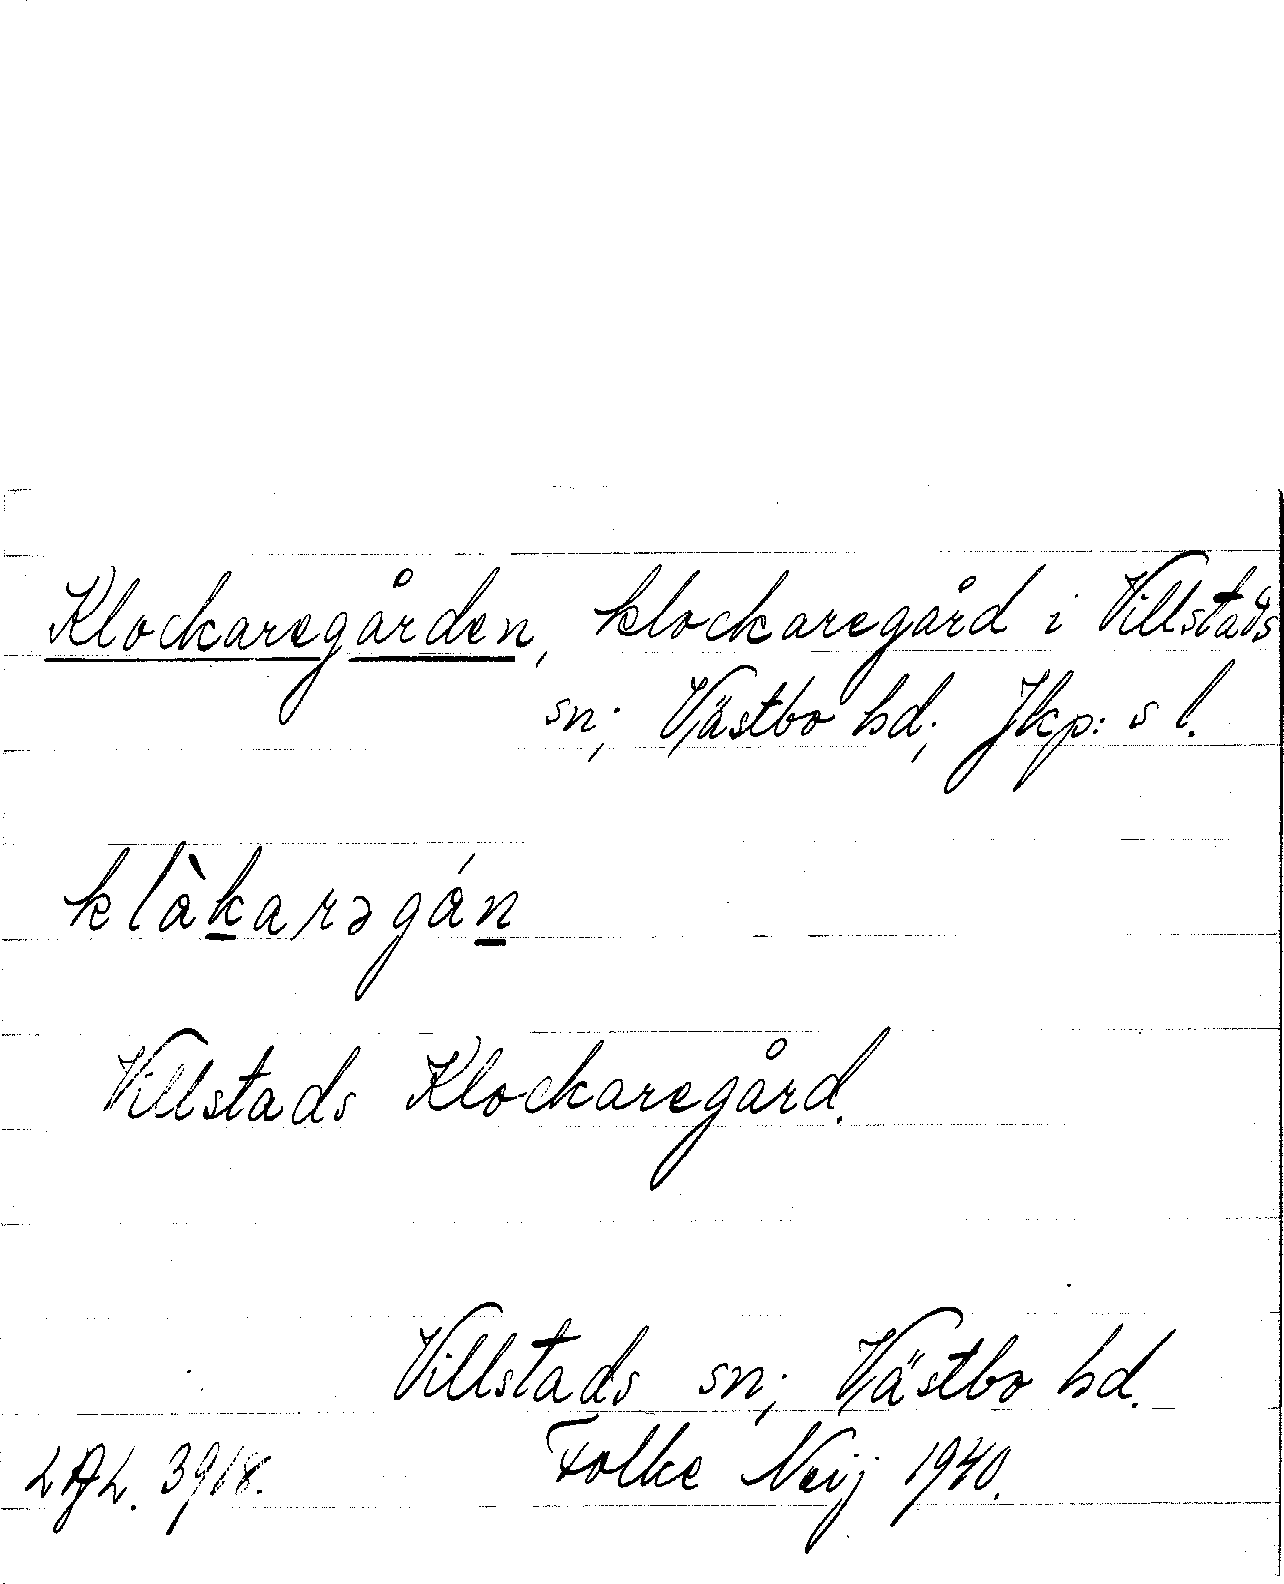 Klockaregården, klockaregård i Villstads
sn; Västbo hd; Jkp: s l.
klàkarəgán
Villstads Klockaregård.
Villstads sn; Västbo hd.
Folke Neij 1940.
LAL. 3918.